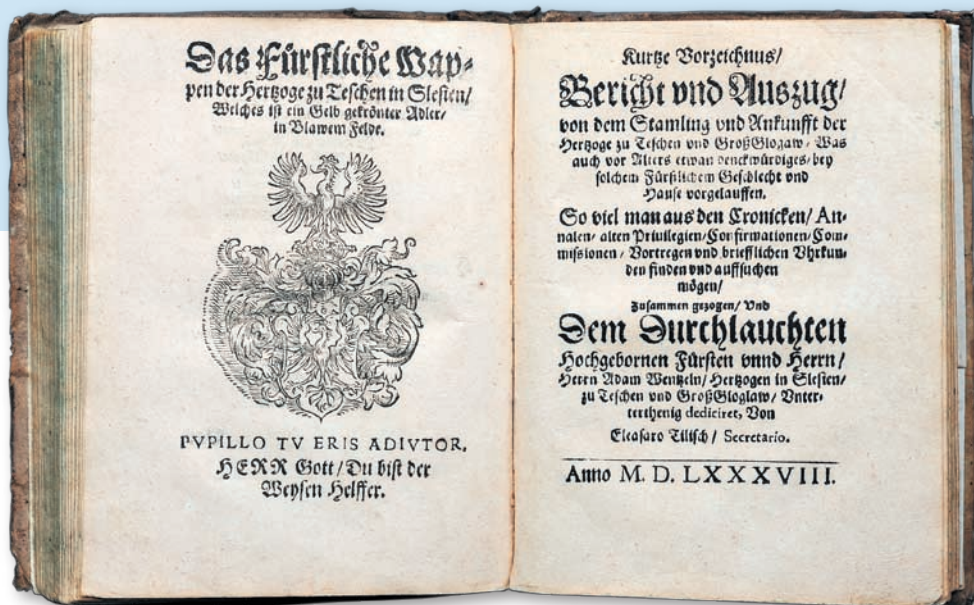 Das Fürstliche Wap-
pen der Hertzoge zu Teschen in Slesien/
Welches ist ein Gelb gekrönter Adler/
in Blawem Felde.
PVPILLO TV ERIS ADIVTOR.
HERR Gott/ Du bist der
Weysen Helffer.
Kurtze Vorzeichnus/
Bericht vnd Auszug/
von dem Stamling vnd Ankunfft der
Hertzoge zu Teschen vnd GroßGlogaw/ Was
auch vor Alters etwan denckwürdiges/ bey
solchem Fürstlichem Geschlecht vnd
Hause vorgelauffen.
So viel man aus den Cronicken/ An-
nalen/ alten Priuilegien/ Confirmationen/ Com-
missionen/ Vortregen vnd briefflichen Vhrkun-
den finden vnd auffsuchen
mögen/
Zusammen gezogen/ Vnd
Dem Durchlauchten
Hochgebornen Fürsten vnnd Herrn/
Herrn Adam Wentzeln/ Hertzogen in Slesien/
zu Teschen vnd GroßGloglaw/ Vnter-
terthenig dediciret, Von
Eleasaro Tilisch/ Secretario.
Anno M. D. LXXXVIII.